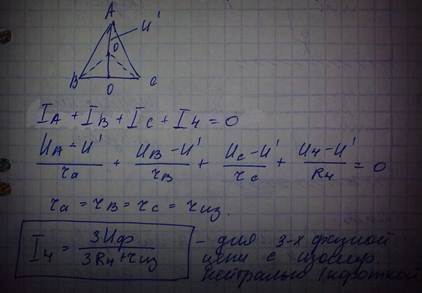 A
U'
O
B
C
O
I_A + I_B + I_C + I_ч = 0
(U_A - U')/r_a + (U_B - U')/r_B + (U_C - U')/r_c + (U_ч - U')/R_ч = 0
r_a = r_B = r_c = r_из.
I_ч = 3U_ф/(3R_ч + r_из) - для 3-х фазной
цепи с изолир.
нейтралью (короткой